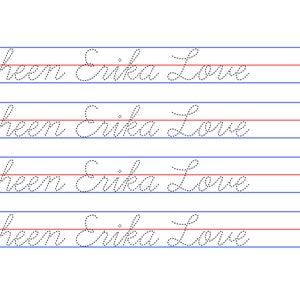 heen Erika Love
heen Erika Love
heen Erika Love
heen Erika Love